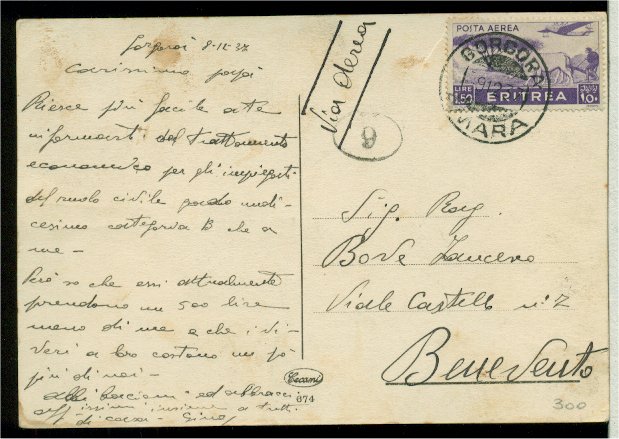 Gorgorà 8-II-37
Carissimo papà
Riesce più facile a te
informarti del trattamento
economico per gli impiegati
del ruolo civile grado undi-
cesimo categoria B che a
me -
Però so che essi attualmente
prendono un 500 lire
meno di me e che i vi-
veri a loro costano un pò
più di noi -
bacioni ed abbracci
insieme a tutti
di casa - Gino
Via Aerea
9
POSTA AEREA
LIRE 1.50
ERITREA
GORGORA
AMARA
Sig. Rag.
Bove
Viale Castello n. 2
Benevento
Cecami
674
300